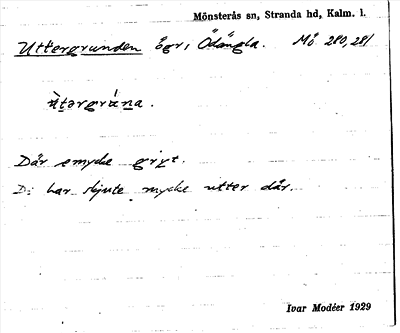 Mönsterås sn, Stranda hd, Kalm. l.
Uttergrunden ägr i Ödängla. Mö 280, 281
Där emycke
Di har skjute mycke utter där.
Ivar Modéer 1929